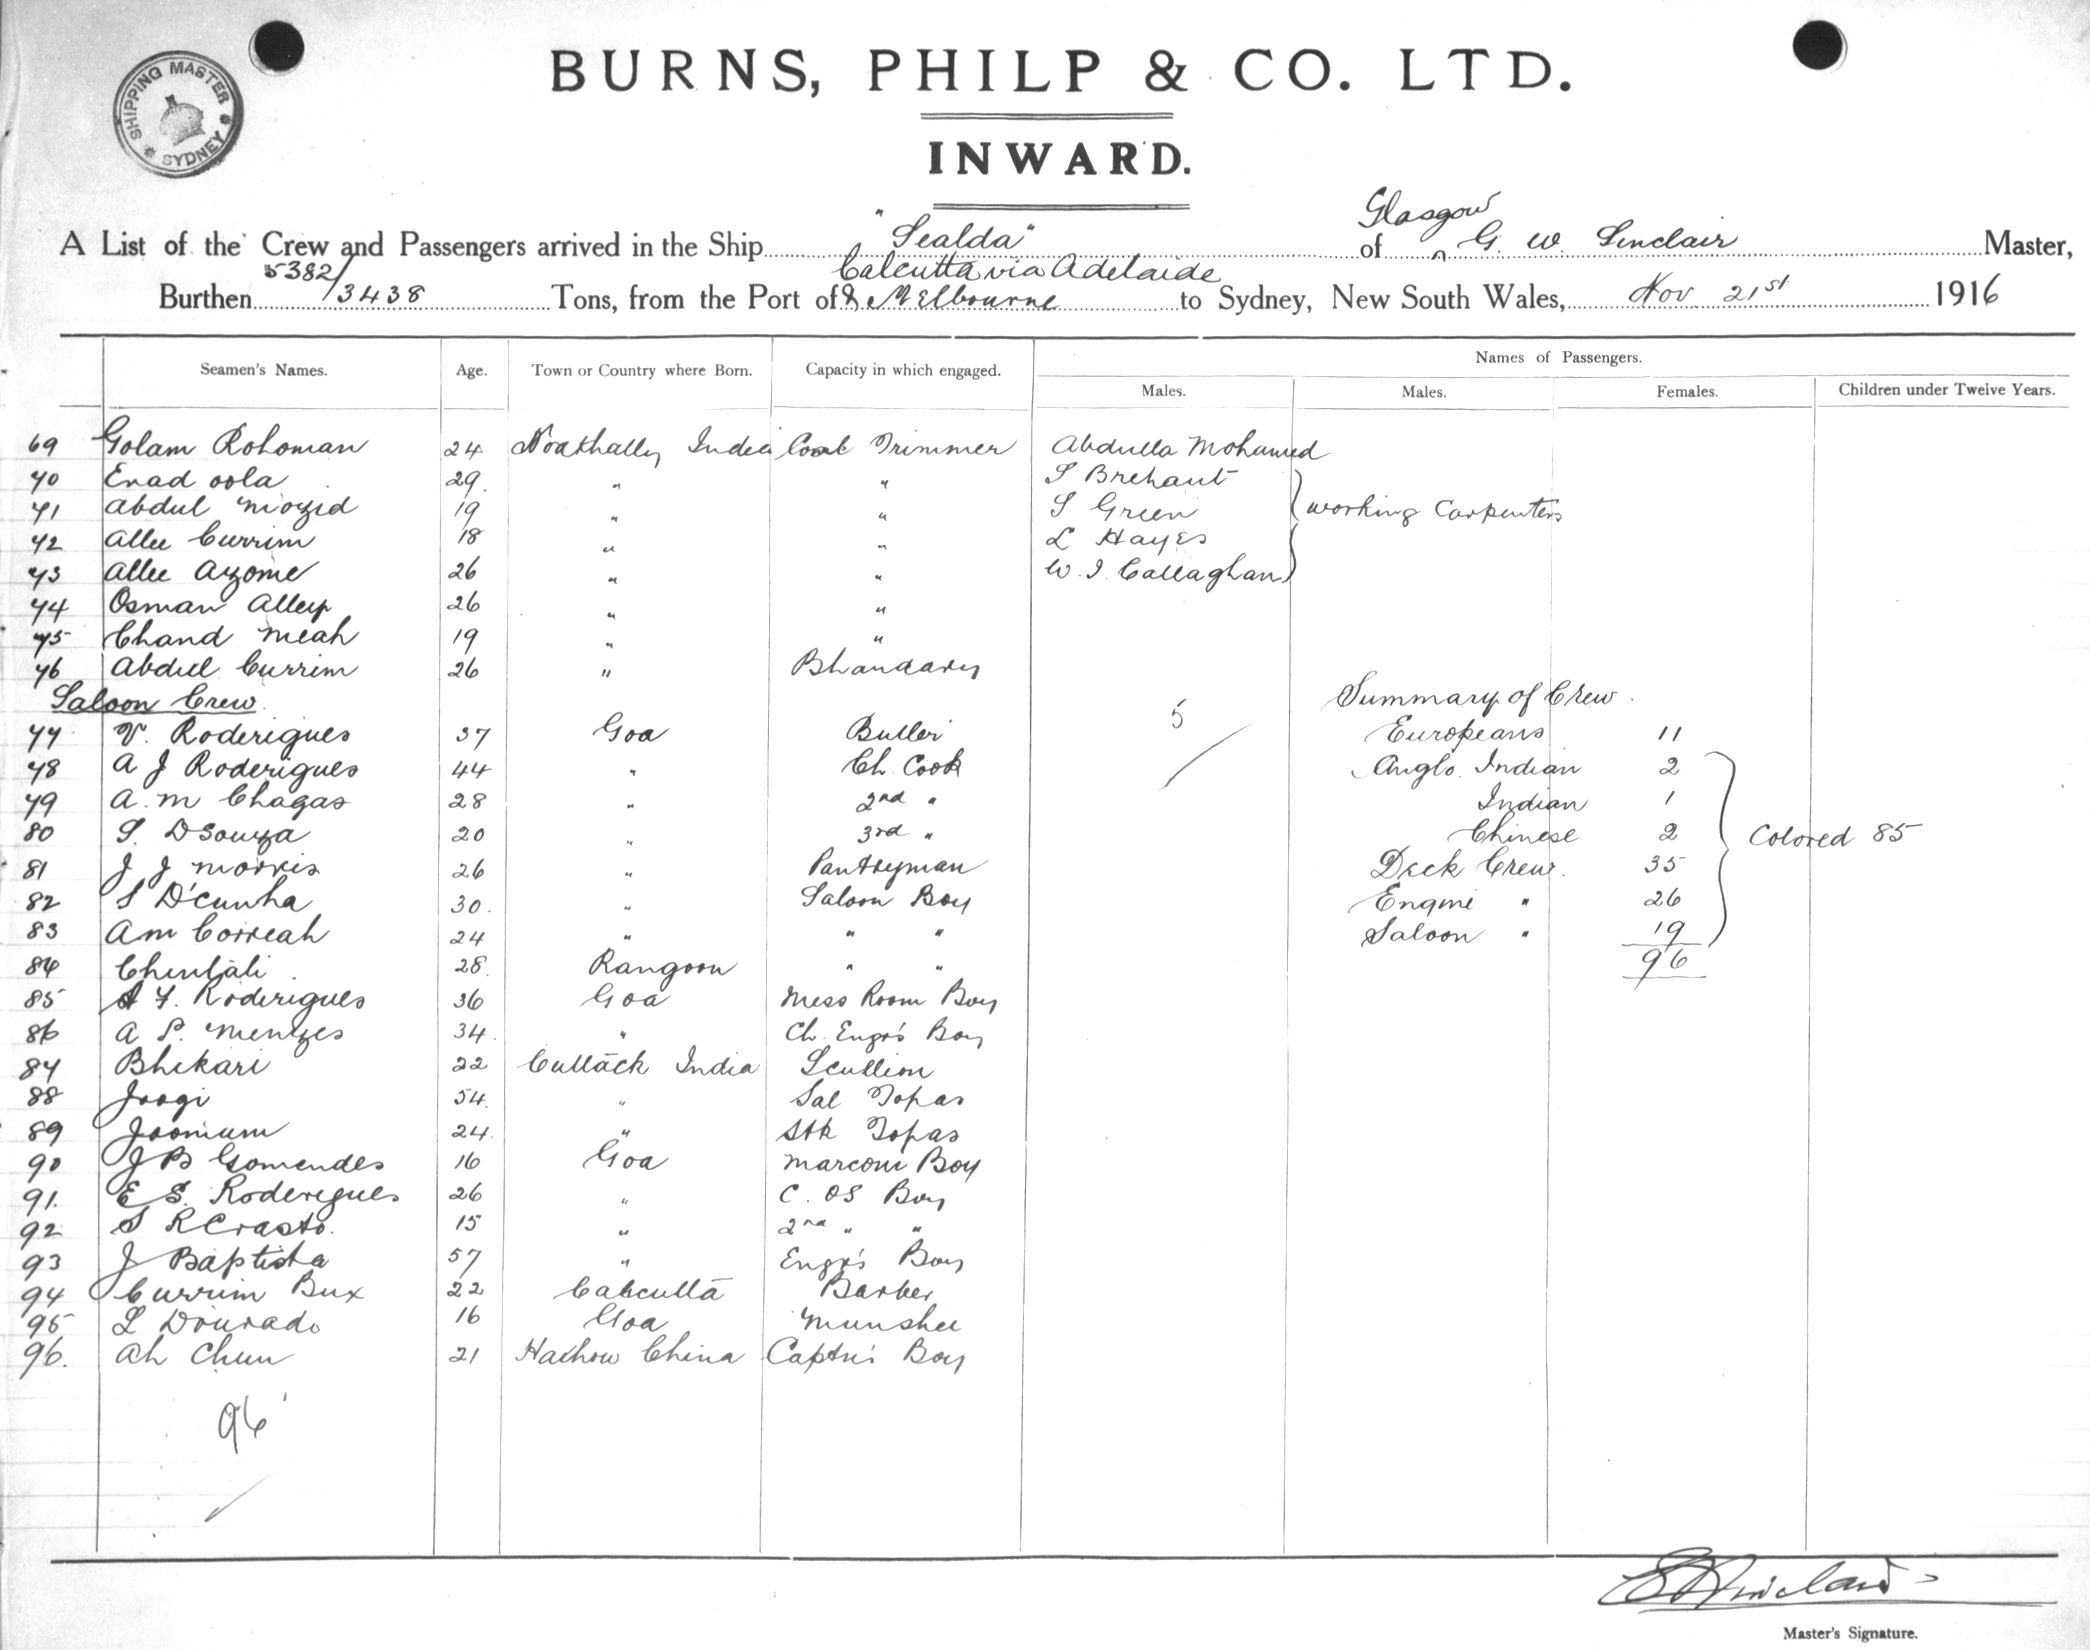 SHIPPING MASTER
SYDNEY
BURNS, PHILP & CO. LTD.
INWARD.
A List of the Crew and Passengers arrived in the Ship "Sealda" of Glasgow G. W. Sinclair Master,
Burthen 5382/3438 Tons, from the Port of Calcutta via Adelaide & Melbourne to Sydney, New South Wales, Nov 21st 1916
Seamen's Names. Age. Town or Country where Born. Capacity in which engaged. Names of Passengers.
Males. Males. Females. Children under Twelve Years.
69 Golam Rohoman 24 Noakhally India Coal Trimmer Abdulla Mohamed
70 Enad oola 29. " " S Brehaut
71 Abdul Mozid 19 " " S Green working Carpenters
72 Allee Currim 18 " " L Hayes
73 Allee Azome 26 " " W. J. Callaghan
74 Osman Alley 26 " "
75 Chand Meah 19 " "
76 Abdul Currim 26 " Bhandary
Saloon Crew. 5 Summary of Crew.
77 V. Roderigues 37 Goa Butler Europeans 11
78 A J Roderigues 44 " Ch. Cook Anglo. Indian 2
79 A. M Chagas 28 " 2nd " Indian 1
80 S. DSouza 20 " 3rd " Chinese 2 Colored 85
81 J J Morris 26 " Pantryman Deck Crew. 35
82 S D'cunha 30. " Saloon Boy Engine " 26
83 A M Correah 24 " " " Saloon " 19
84 28. Rangoon " " 96
85 A F. Roderigues 36 Goa Mess Room Boy
86 A P. Menzes 34. " Ch. Engr's Boy
87 Bhikari 22 Cuttack India Scullion
88 Joogi 54. " Sal Topas
89 Joomum 24. " Stk Topas
90 J B Gomendes 16 Goa Marconi Boy
91. E S. Roderigues 26 " C. OS Boy
92 S R Crasto. 15 " 2nd " "
93 J Baptista 57 " Engr's Boy
94 Currim Bux 22 Calcutta Barber
95 L Dourado 16 Goa Munshee
96. Ah Chun 21 China Captn's Boy
96
Master's Signature.